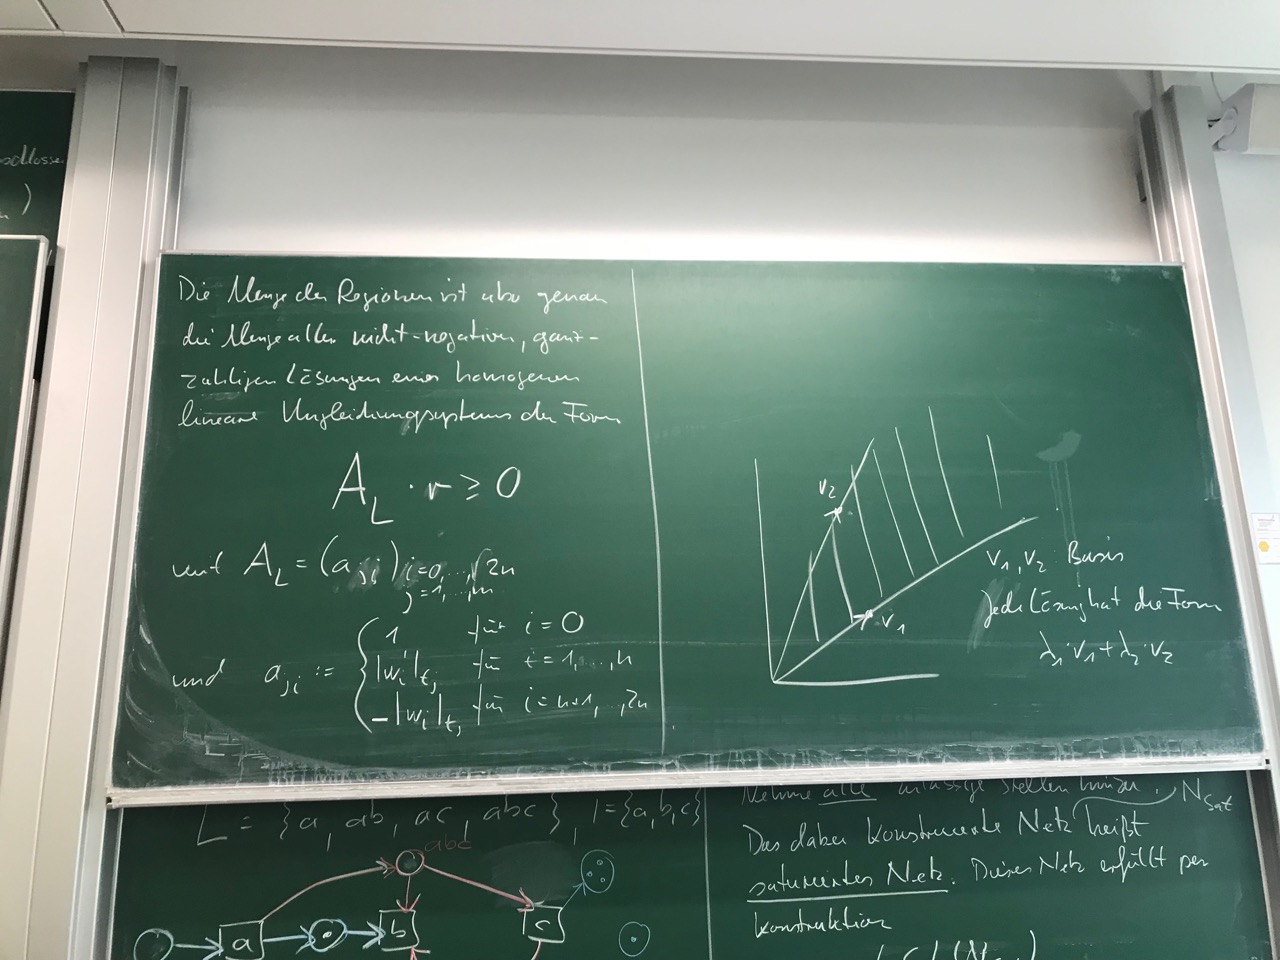 schlosse
)
Die Menge der Regionen ist also genau
die Menge aller nicht-negativen, ganz-
zahligen Lösungen eines homogenen
lineare Ungleichungssystems der Form
A_L · r ≥ 0
mit A_L = (a_ji) i=0,...,2n
j=1,...,m
und a_ji := { 1 für i = 0
|w_i|_tj für i = 1,...,n
-|w_i|_tj für i = n+1,...,2n
v_2
v_1
v_1, v_2 Basis
jede Lösung hat die Form
λ_1·v_1 + λ_2·v_2
L = {a, ab, ac, abc}, T={a,b,c}
abc
a
b
c
Nehme alle zulässige Stellen hinzu. N_Sat
Das dabei konstruierte Netz heißt
saturiertes Netz. Dieses Netz erfüllt per
Konstruktion